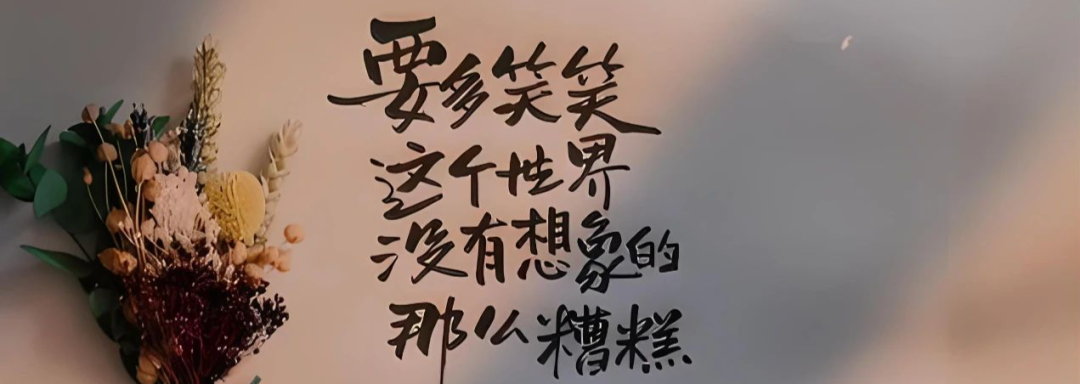 要多笑笑
这个世界
没有想象的
那么糟糕